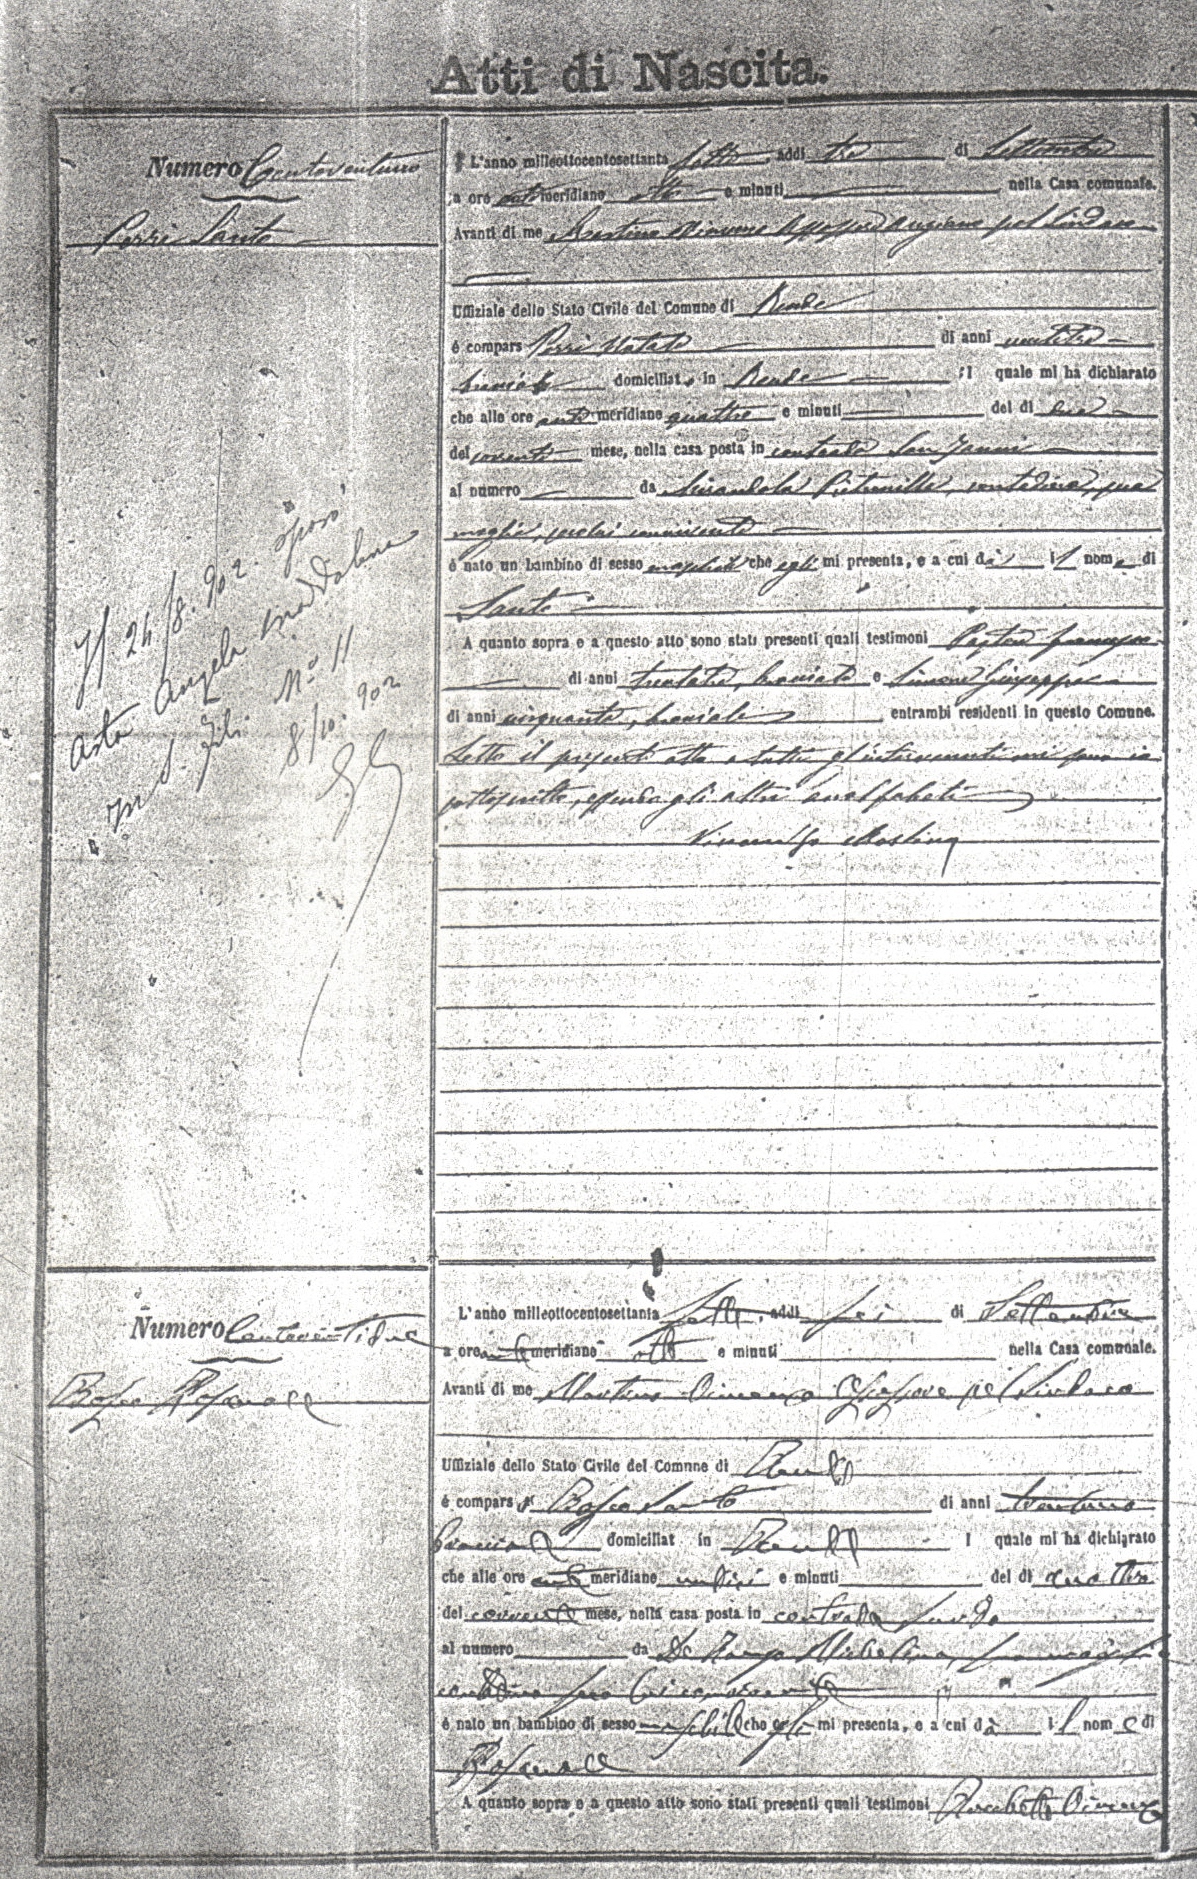 Atti di Nascita.
Numero Centoventuno
Perri Santo
L'anno milleottocentosettanta sette, addì tre di Settembre
a ore anti meridiane otto e minuti nella Casa comunale.
Avanti di me Martino Assessore anziano pel Sindaco
Uffiziale dello Stato Civile del Comune di Rende
è compars Perri Natale di anni ventitre
bracciale domiciliato in Rende il quale mi ha dichiarato
che alle ore anti meridiane quattro e minuti del dì due
del corrente mese, nella casa posta in contrada San Janni
al numero da Mirandola contadina, sua
moglie, seco lui convivente
è nato un bambino di sesso maschile che egli mi presenta, e a cui dà il nome di
Santo
A quanto sopra e a questo atto sono stati presenti quali testimoni Francesco
di anni bracciale e Simone Giuseppe
di anni cinquanta, bracciale entrambi residenti in questo Comune.
Letto il presente atto a tutti gl'intervenuti
sottoscritto, essendo gli altri analfabeti
Martino
Il 24/8. 902. sposò
Angela Maddalena
in S. Fili N.º 11
8/10. 902
Numero Centoventidue
Bosco Pasquale
L'anno milleottocentosettanta sette, addì sei di Settembre
a ore ante meridiane otto e minuti nella Casa comunale.
Avanti di me Martino Vincenzo Assessore pel Sindaco
Uffiziale dello Stato Civile del Comune di Rende
è compars Bosco Santo di anni trentuno
bracciale domiciliat in Rende I quale mi ha dichiarato
che alle ore ante meridiane undici e minuti del dì quattro
del corrente mese, nella casa posta in contrada
al numero da De Michelina, sua moglie
contadina seco lui convivente
è nato un bambino di sesso maschile che egli mi presenta, e a cui dà il nome di
Pasquale
A quanto sopra e a questo atto sono stati presenti quali testimoni